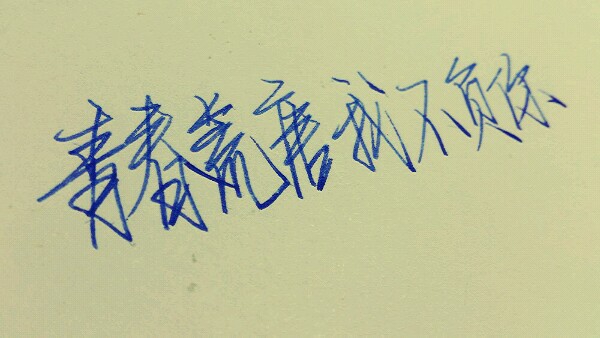 青春荒唐我不负你